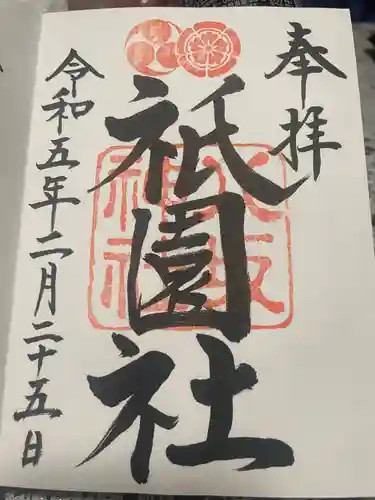 奉拝
祇園社
八坂神社
令和五年二月二十五日